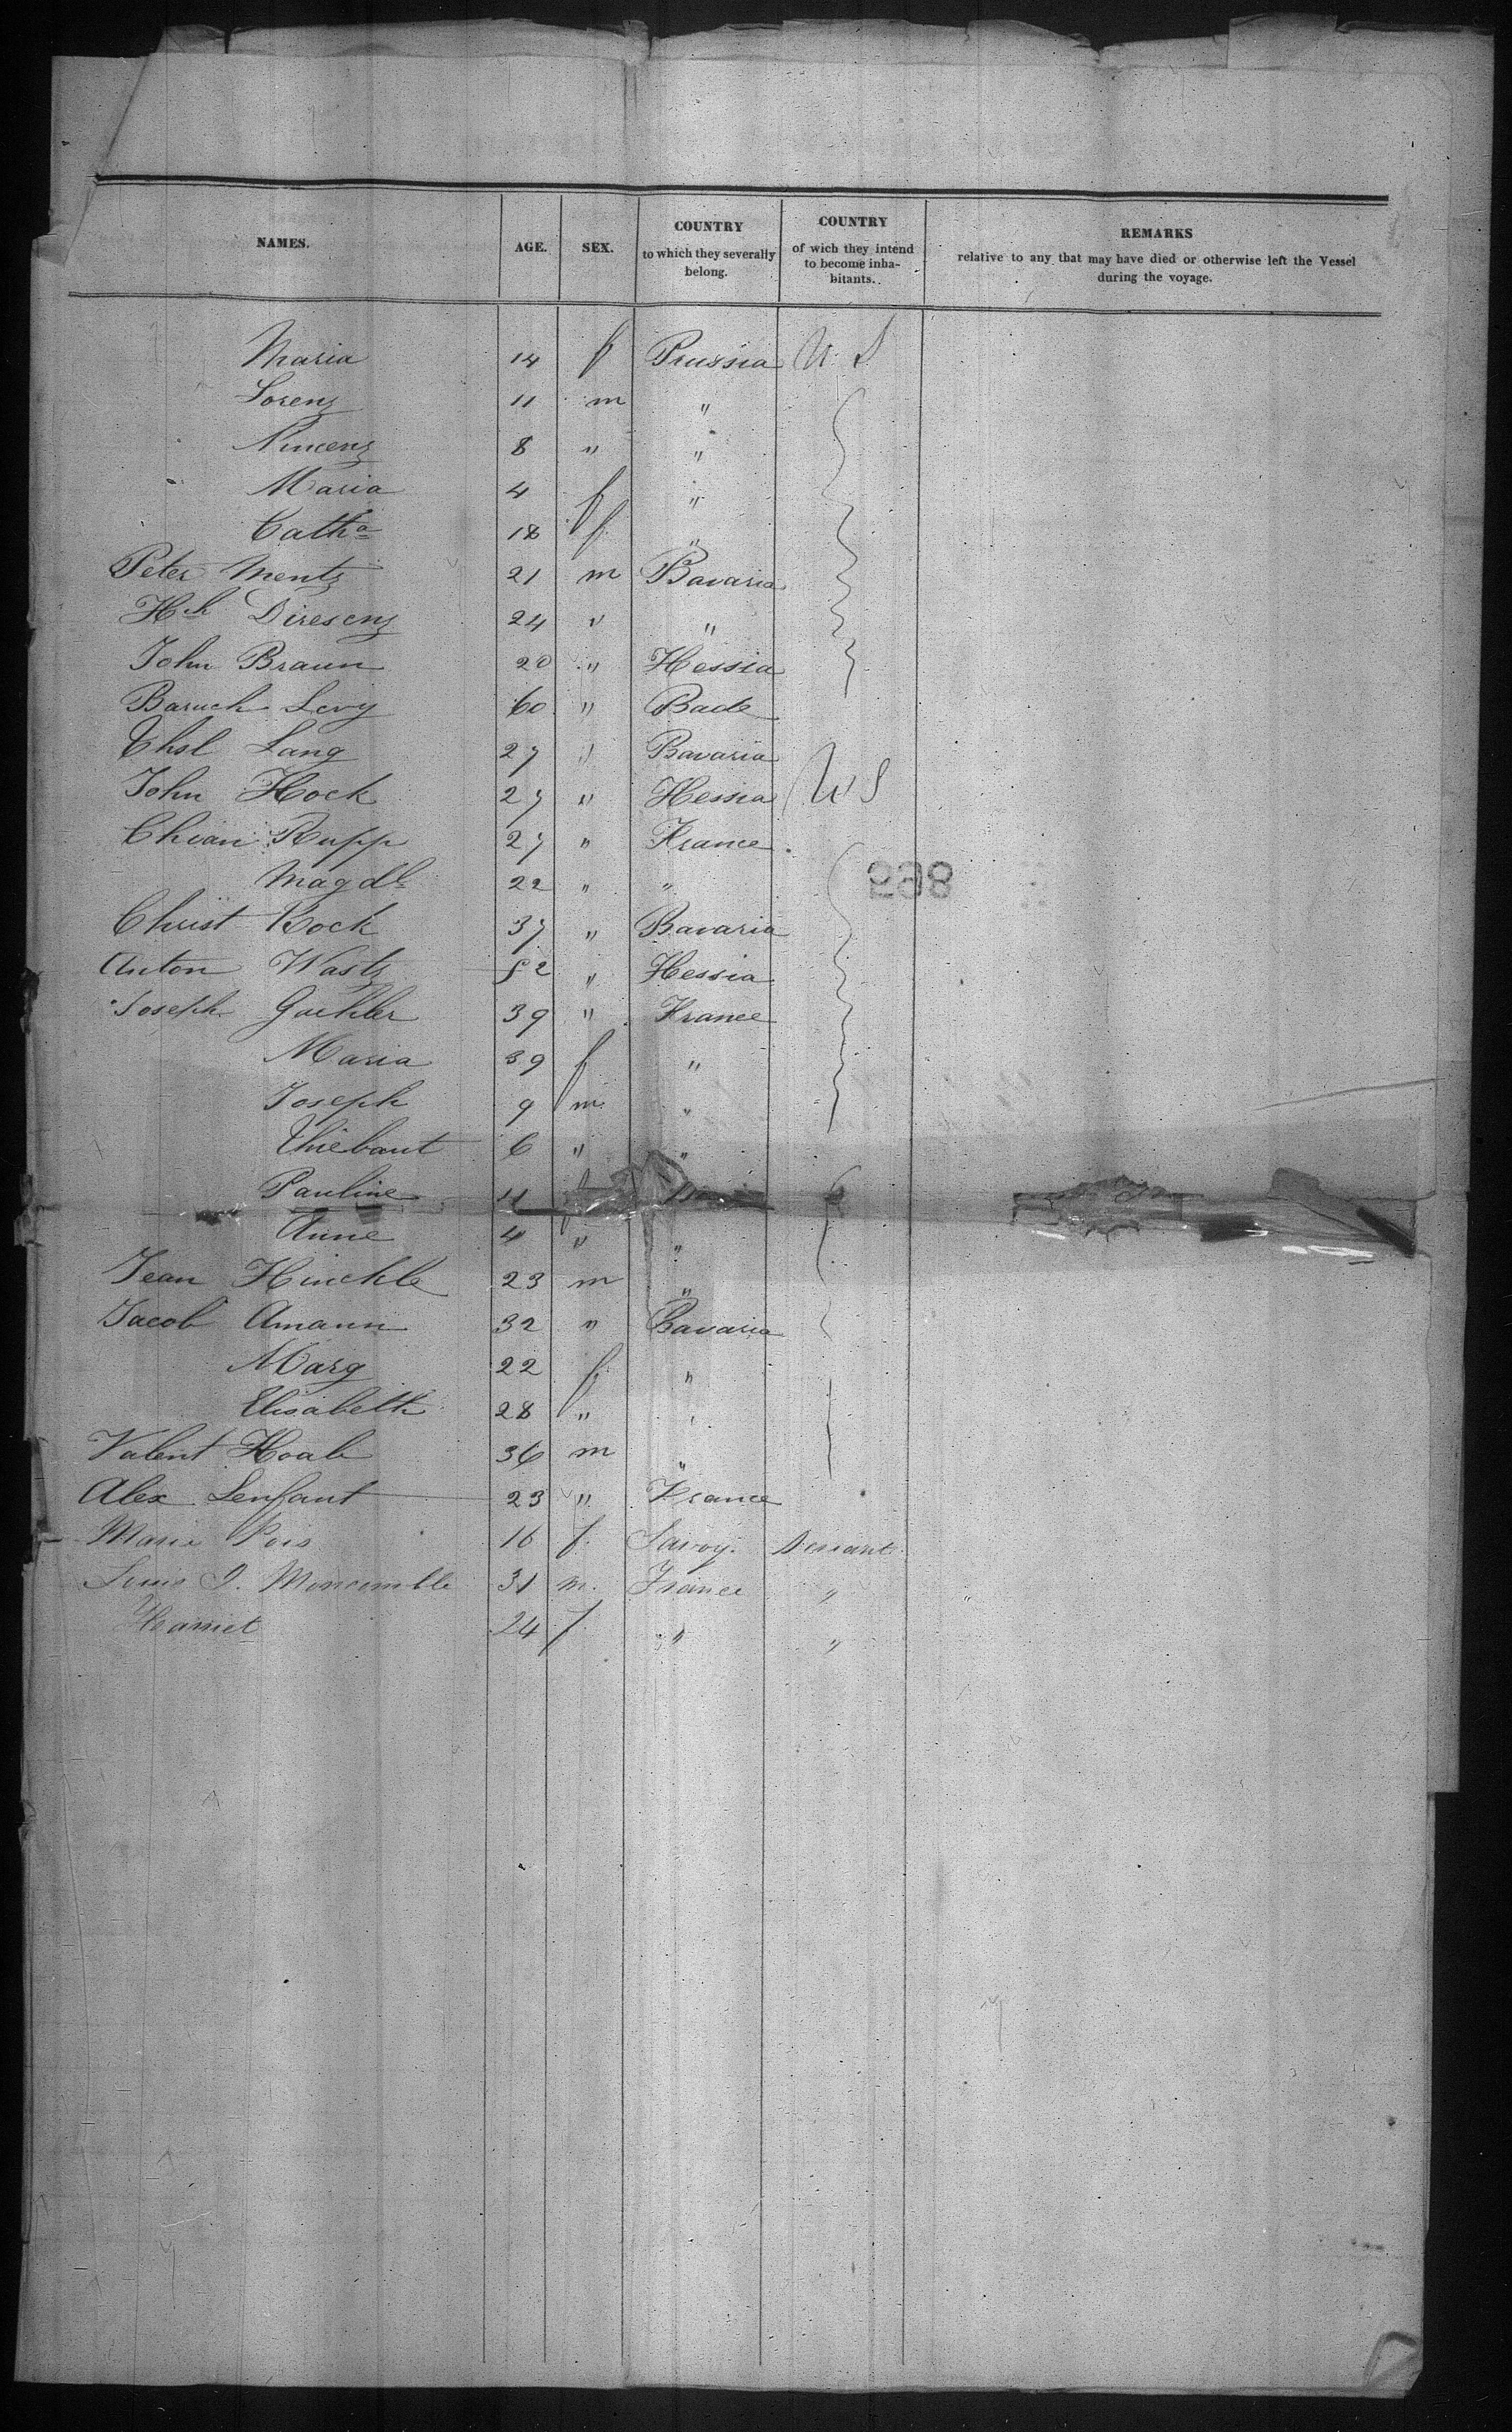 NAMES. AGE. SEX. COUNTRY to which they severally belong. COUNTRY of wich they intend to become inha-bitants. REMARKS relative to any that may have died or otherwise left the Vessel during the voyage.
Maria 14 f Prussia U. S
Lorenz 11 m "
Vincenz 8 " "
Maria 4 f "
Catha 18 f "
Peter Mentz 21 m Bavaria
Hh Diresenz 24 " "
John Braun 20 " Hessia
Baruch Levy 60 " Bade
Chsl Lang 27 " Bavaria
John Hock 27 " Hessia U S
Chian Rupp 27 " France
Magdl 22 " "
898
Christ Bock 37 " Bavaria
Anton Wastz 52 " Hessia
Joseph Guehler 39 " France
Maria 39 f "
Joseph 9 m "
Thiebaut 6 " "
Pauline 11
Anne 4 " "
Jean Hinckle 23 m "
Jacob Amann 32 " Bavaria
Marg 22 f "
Elisabeth 28 " "
Valent Hoab 36 m "
Alex Lenfant 23 " France
Marie Pois 16 f. Savoy. Servant
Louis J. Moncomble 31 m. France "
Harriet 24 f " "